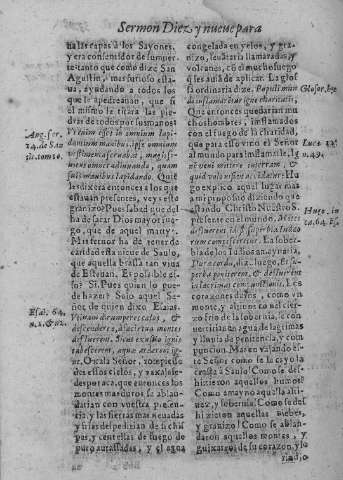 Sermon Diez y nueue para
ua las capas à los Sayones,
y era consentidor de su muer-
te: tanto que como dize San
Agustin, mas furioso esta-
ua, ayudando a todos los
que le apedreauan, que si
el mismo le tirara las pie-
dras de todos por sus manos:
esset in omnium lapi-
dantium manibus, ipse omnium
vestimenta seruabat, magis
omnes adiuuando, quam
suis manibus lapidando. Que
les dixera entonces a los que
estauan presentes, veys esto
granizo? Pues sabed que del
ha de sacar Dios mayor fue-
go, que de aquel
Mas temor ha de tener de
caridad esta nieue de Saulo,
que aquella brasa tan viua
de Esteuan. Es posible es-
so? Si. Pues quien lo pue-
de hazer? Solo aquel Señor
de quien dixo Esaias.
Vtinam dirumperes cælos, &
descenderes, à facie tua montes
defluerent. Sicut exustio ignis
tabescerent, aquæ arderent ig-
ni. O xala Señor, rompiesse-
des essos cielos, y baxassse-
des por aca, que entonces los
montes mas duros se ablan-
darian con vuestra presen-
cia, y las sierras mas neuadas
y frias despedirian de si chis-
pas, y centellas de fuego de
puro abrassadas, y el agua
Aug. ser.
Esai. 64.
n. 1. & 2.
congelada en yelos, y gra-
nizo, leuantaria llamaradas, y
volcanes, con mucho fuego
que se auia de aplicar. La glos-
sa ordinaria dize. Populi mundi
inflammabitur igne charitatis,
Que entonces quedarian mu-
chos hombres, inflamados
con el fuego de la charidad,
que para esso vino el Señor
al mundo para inflamarle, Ig-
nem veni mittere in terram, &
quid volo nisi vt accendatur? Hu-
go explico aquel lugar mas
a mi proposito diziendo que
estando Christo Nuestro
presente en el mundo. Montes
defluerent id est superbia Iudæo-
rum compesceretur. La sober-
bia de los Iudios amaynaria.
Paraque los
corazones duros, como vn
monte, y altiuos hasta el cie-
lo con la soberuia, se con-
uertirian en agua de lagrimas
y lluuia de penitencia, y com-
puncion. Mas en baxando es-
te Señor como se le cayo la
cresta à Saulo! Como se des-
hizieron aquellos humos!
Como amayno aquella alti-
uez, y soberuia! Como se des-
hizieron aquellas nieues,
y granizo! Como se ablan-
daron aquellos montes, y
guixarros de su corazon, y lo
Glosar. hic
Luce 12.
n. 49.
Hugo. in
ca. 64. Es.